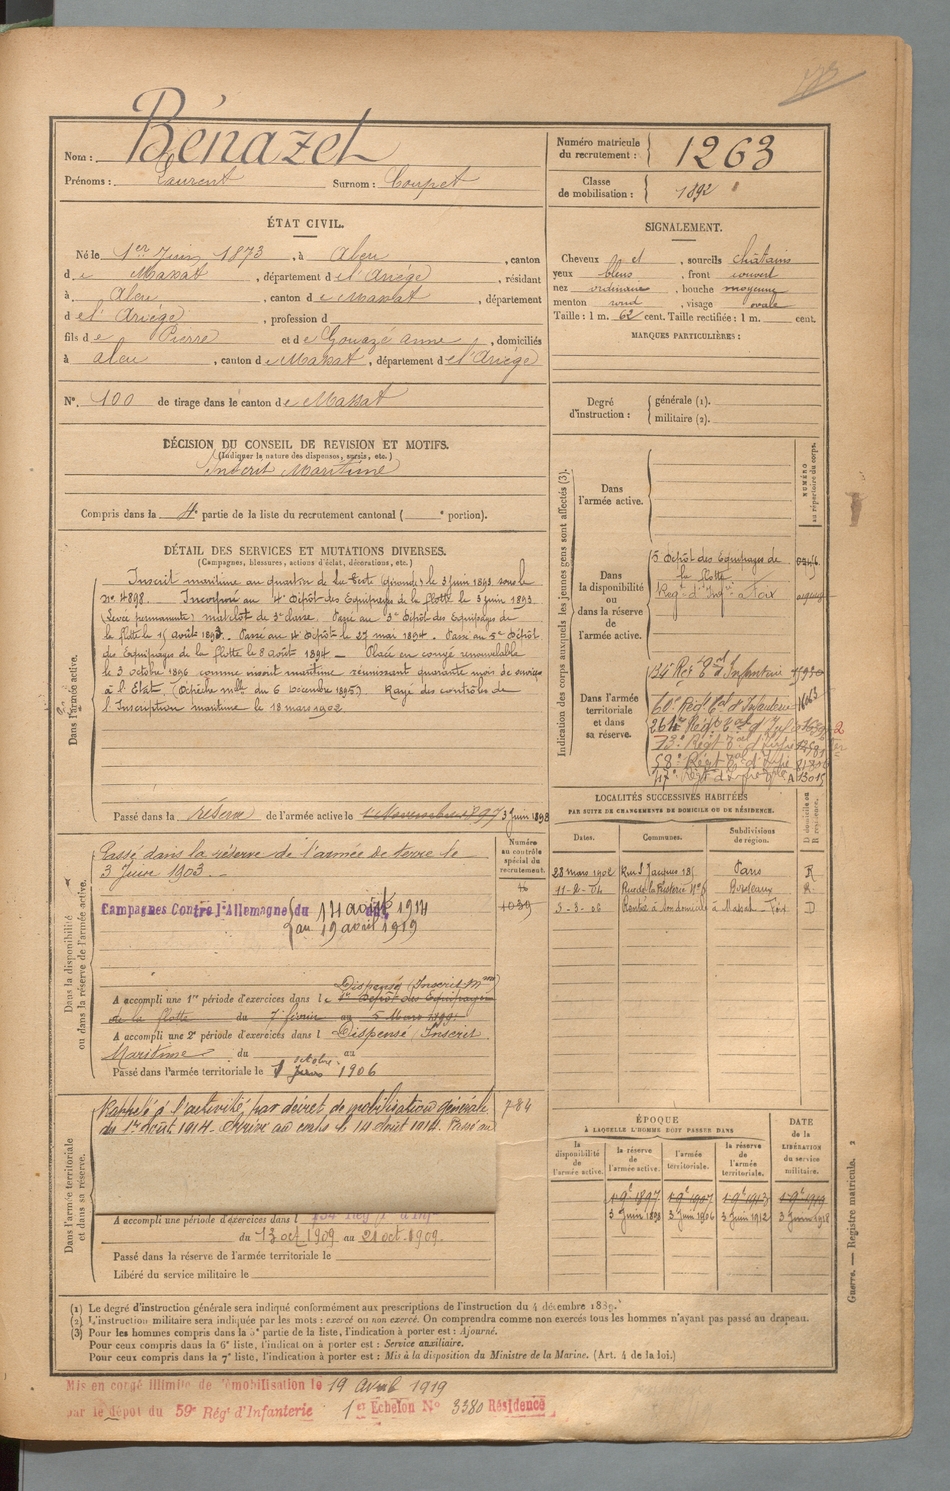 Nom : Bénazet
Prénoms : Laurent Surnom : Coupet
Numéro matricule du recrutement : 1263
Classe de mobilisation : 1892
ÉTAT CIVIL.
Né le 1er Juin 1873, à Aleu, canton
de Massat, département de l'Ariège, résidant
à Aleu, canton de Massat, département
de l'Ariège, profession d
fils de Pierre et de Gouazé anne, domiciliés
à aleu, canton de Massat, département de l'Ariège
N°. 100 de tirage dans le canton de Massat
SIGNALEMENT.
Cheveux et, sourcils châtains
yeux bleus, front couvert
nez ordinaire, bouche moyenne
menton rond, visage ovale
Taille : 1 m. 62 cent. Taille rectifiée : 1 m. cent.
MARQUES PARTICULIÈRES :
Degré d'instruction : générale (1).
militaire (2).
DÉCISION DU CONSEIL DE REVISION ET MOTIFS.
(Indiquer la nature des dispenses, sursis, etc.)
Inscrit Maritime
Compris dans la 4e partie de la liste du recrutement cantonal ( e portion).
DÉTAIL DES SERVICES ET MUTATIONS DIVERSES.
(Campagnes, blessures, actions d'éclat, décorations, etc.)
Dans l'armée active.
Inscrit maritime au quartier de La Teste (gironde) le 3 juin 1893 sous le
no 4898. Incorporé au 4e Dépôt des Equipages de la flotte le 3 juin 1893
(Levée permanente) matelot de 3e classe. Passé au 3e Dépôt des Equipages de
la flotte le 15 août 1893. Passé au 4e Dépôt le 27 mai 1894. Passé au 5e Dépôt
des Equipages de la flotte le 8 août 1894 — Placé en congé renouvelable
le 3 octobre 1896 comme inscrit maritime réunissant quarante mois de services
à l'Etat (Dépêche mlle du 6 Décembre 1895). Rayé des contrôles de
l'Inscription maritime le 18 mars 1902.
Passé dans la réserve de l'armée active le 1 Novembre 1897 3 juin 1898
Indication des corps auxquels les jeunes gens sont affectés (3).
NUMÉRO au répertoire du corps.
Dans l'armée active.
Dans la disponibilité ou dans la réserve de l'armée active.
5 Dépôt des Equipages de
la flotte
Regt d'Infie Foix
Dans l'armée territoriale et dans sa réserve.
134 Rgt d'Infanterie
LOCALITÉS SUCCESSIVES HABITÉES
PAR SUITE DE CHANGEMENTS DE DOMICILE OU DE RÉSIDENCE.
Dates. Communes. Subdivisions de région. D domicile ou R résidence.
28 mars 1902 Rue St Jacques 185 Paris R
11-2-04 Rue de la Fusterie No 6 Bordeaux R
5-3-06 Rentré à son domicile à Massat - Foix D
Dans la disponibilité ou dans la réserve de l'armée active.
Numéro au contrôle spécial du recrutement.
1039
Passé dans la réserve de l'armée de terre le
3 Juin 1903.
Campagnes Contre l'Allemagne du 14 août 1914
au 19 avril 1919
Dispensé (Inscrit Mme)
A accompli une 1re période d'exercices dans le 5e Dépôt des Equipages
de la flotte du 7 février au 5 Mars 1899
A accompli une 2e période d'exercices dans l Dispensé Inscrit
Maritime du au
Passé dans l'armée territoriale le 1 octobre 1906
Dans l'armée territoriale et dans sa réserve.
Rappelé à l'activité par décret de mobilisation générale 784
du 1er août 1914. Arrivé au corps le 14 août 1914. Passé au
A accompli une période d'exercices dans l 134 Reg T d'Inf
du 13 oct 1909 au 21 oct. 1909.
Passé dans la réserve de l'armée territoriale le
Libéré du service militaire le
ÉPOQUE
À LAQUELLE L'HOMME DOIT PASSER DANS
DATE de la LIBÉRATION du service militaire.
la disponibilité de l'armée active. la réserve de l'armée active. l'armée territoriale. la réserve de l'armée territoriale.
1 9e 1897 1 9e 1907 1 9e 1913 1 9e 1919
3 Juin 1898 3 Juin 1906 3 Juin 1912 3 Juin 1918
Guerre. — Registre matricule. 2
(1) Le degré d'instruction générale sera indiqué conformément aux prescriptions de l'instruction du 4 décembre 1889.
(2) L'instruction militaire sera indiquée par les mots : exercé ou non exercé. On comprendra comme non exercés tous les hommes n'ayant pas passé au drapeau.
(3) Pour les hommes compris dans la 5e partie de la liste, l'indication à porter est : Ajourné.
Pour ceux compris dans la 6e liste, l'indication à porter est : Service auxiliaire.
Pour ceux compris dans la 7e liste, l'indication à porter est : Mis à la disposition du Ministre de la Marine. (Art. 4 de la loi.)
Mis en congé illimité de démobilisation le 19 avril 1919
par le dépôt du 59e Régt d'Infanterie 1er Echelon No 3380 Résidence